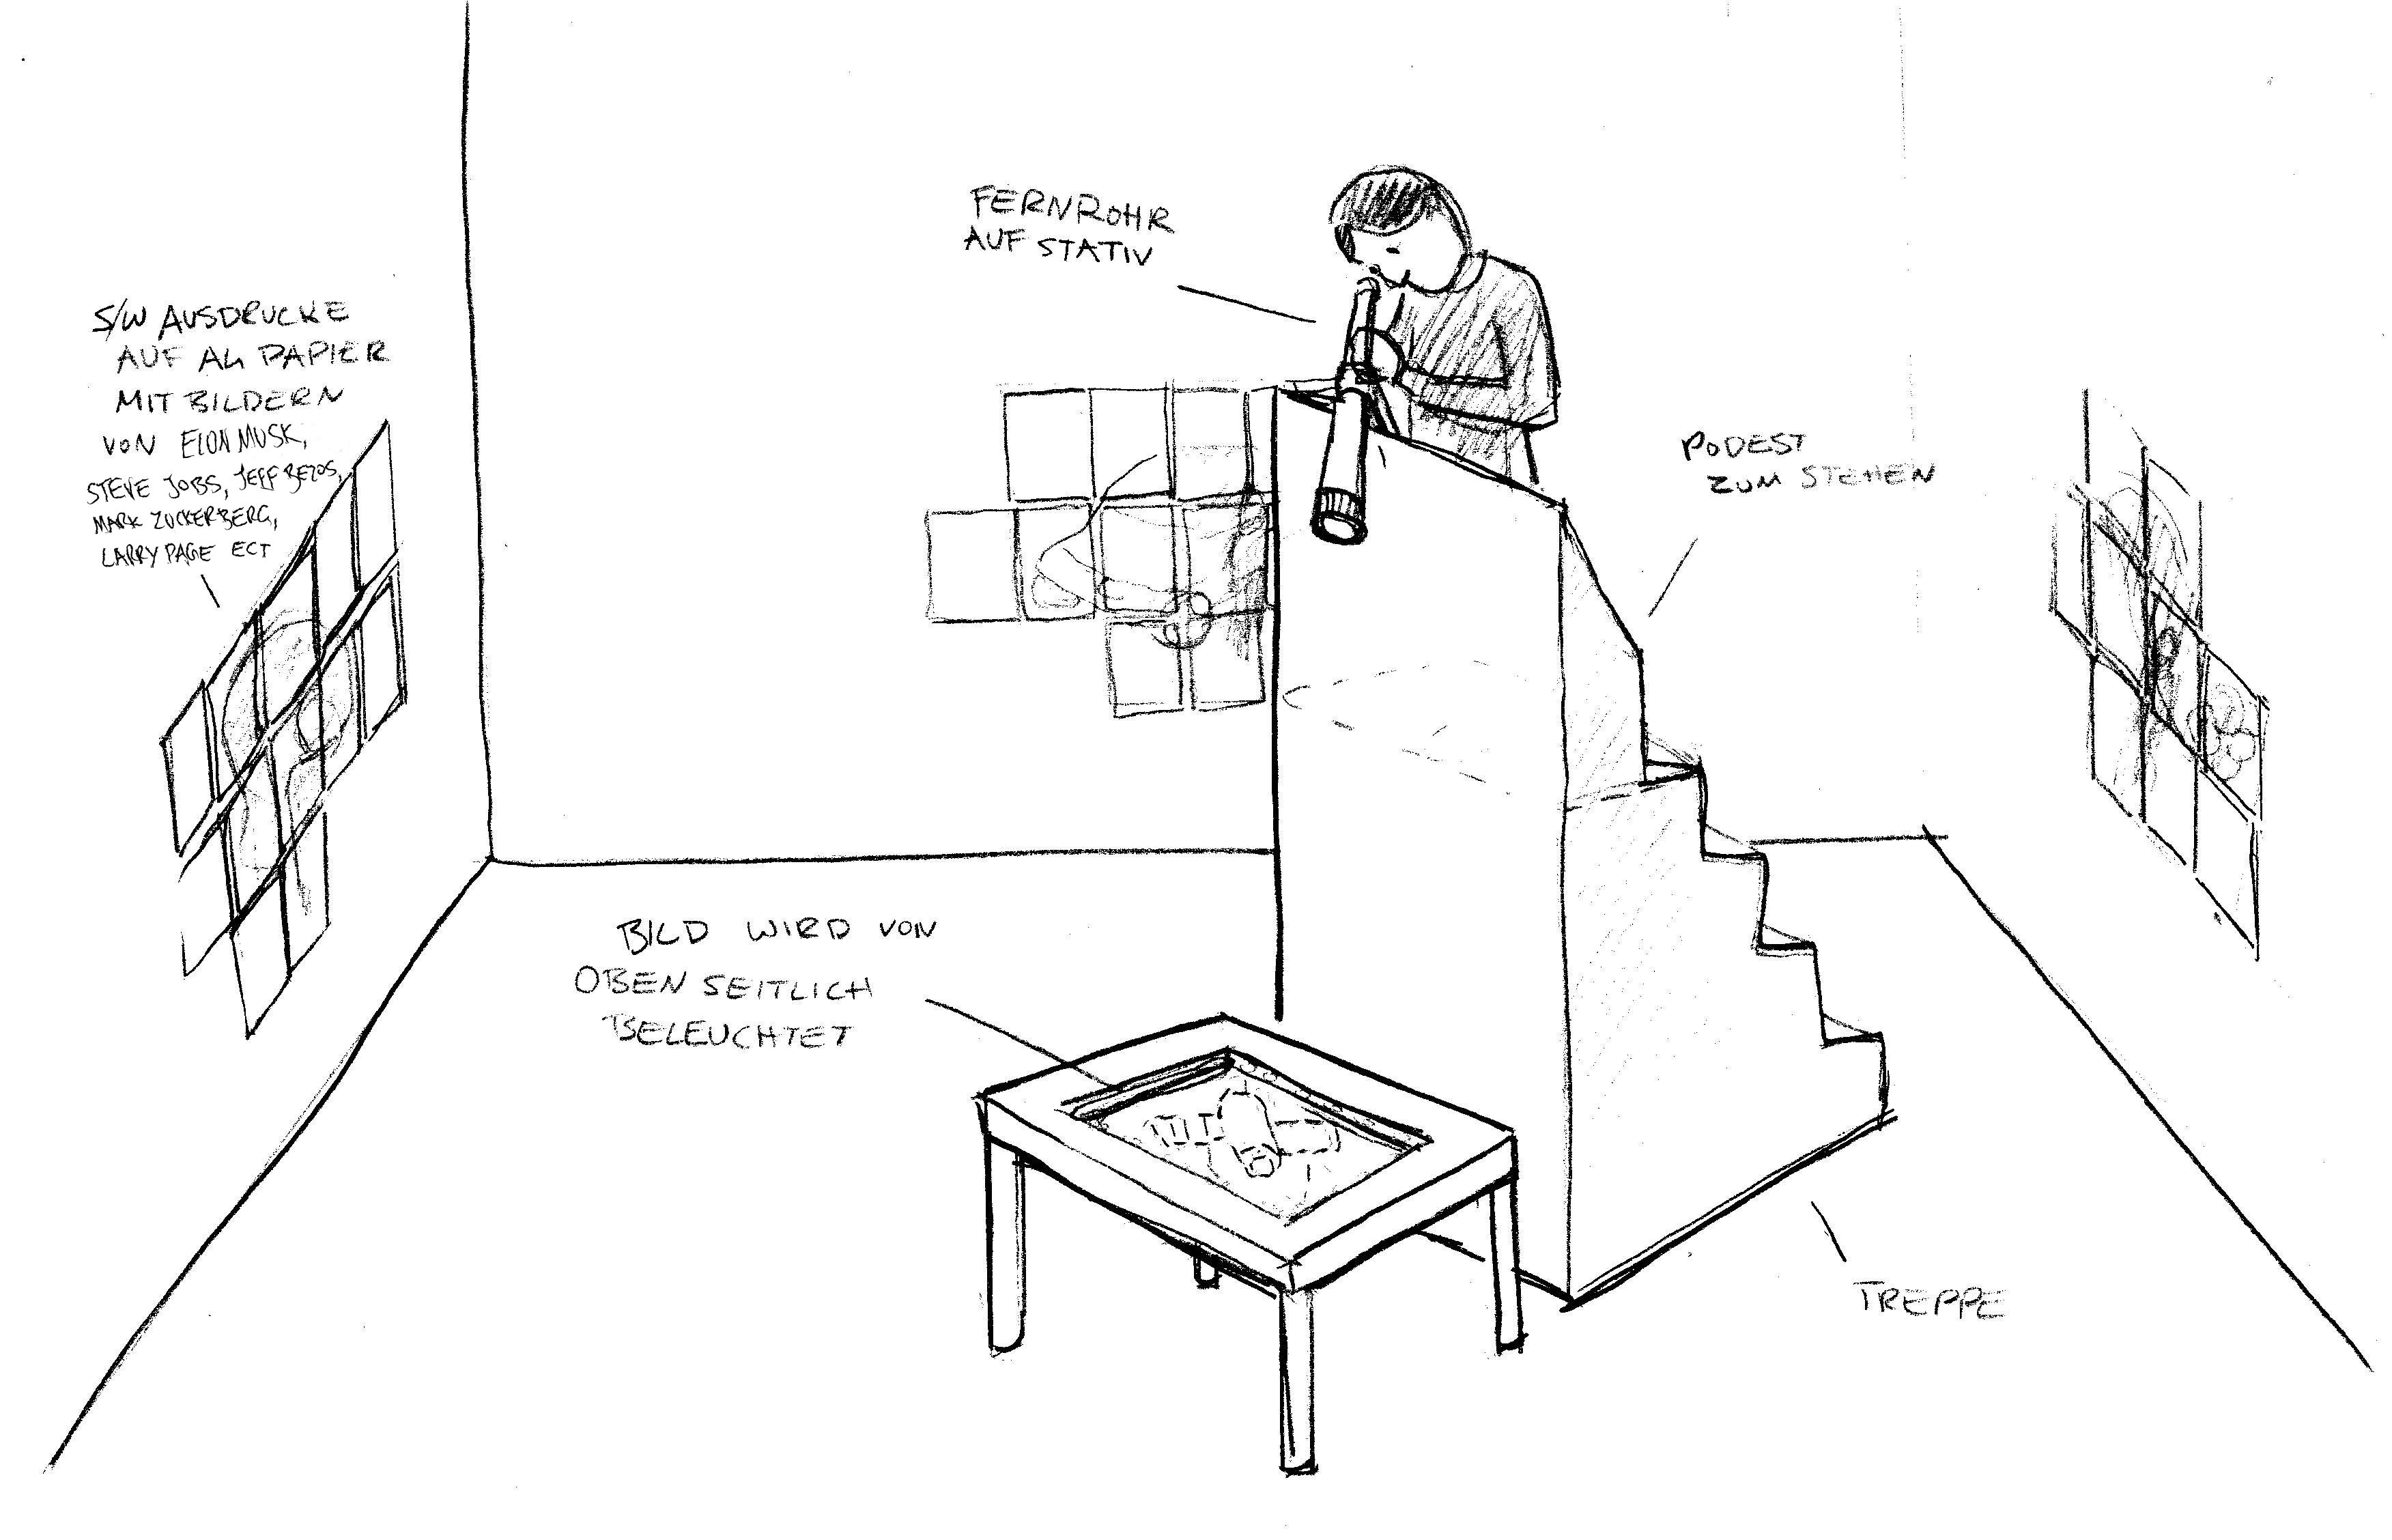 S/W AUSDRUCKE
AUF A4 PAPIER
MIT BILDERN
VON ELON MUSK,
STEVE JOBS, JEFF BEZOS,
MARK ZUCKERBERG,
LARRY PAGE ECT
FERNROHR
AUF STATIV
PODEST
ZUM STEHEN
BILD WIRD VON
OBEN SEITLICH
BELEUCHTET
TREPPE